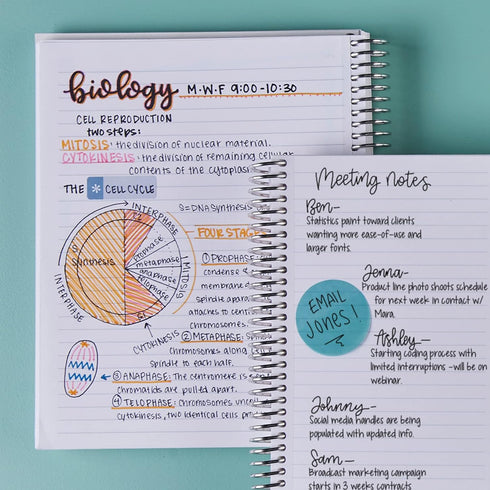 biology M.W.F 9:00-10:30
CELL REPRODUCTION
two steps:
MITOSIS: the division of nuclear material.
CYTOKINESIS: the division of remaining cellular
contents of the cytoplas
THE * CELL CYCLE
S=DNA synthesis an
FOUR STAG
INTERPHASE
G2
S
synthesis
prophase
metaphase
anaphase
telophase
MITOSIS
INTERPHASE
G1
CYTOKINESIS
① PROPHASE:
condense &
membrane d
spindle appara
attaches to centr
chromosomes.
② METAPHASE: Spin
chromosomes along
spindle to each half.
③ ANAPHASE: The centromere is
chromatids are pulled apart.
④ TELOPHASE: Chromosomes uncoil
cytokinesis, two identical cells pr
Meeting notes
Ben-
Statistics paint toward clients
wanting more ease-of-use and
larger fonts.
Jenna-
Product line photo shoots schedule
for next week in contact w/
Mara.
EMAIL
JONES!
Ashley-
Starting coding process with
limited interruptions -will be on
webinar.
Johnny-
Social media handles are being
populated with updated info.
Sam-
Broadcast marketing campaign
starts in 3 weeks contracts